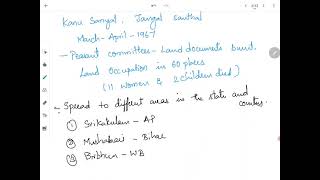 Kanu Sanyal, Jangal Santhal
March-April-1967
- Peasant committees - Land documents burnt.
Land Occupation in 60 places
(11 women & 2 children died)
- Spread to different areas in the state and country.
① Srikakulam - AP
② Mushahari - Bihar
③ Birbhum - WB